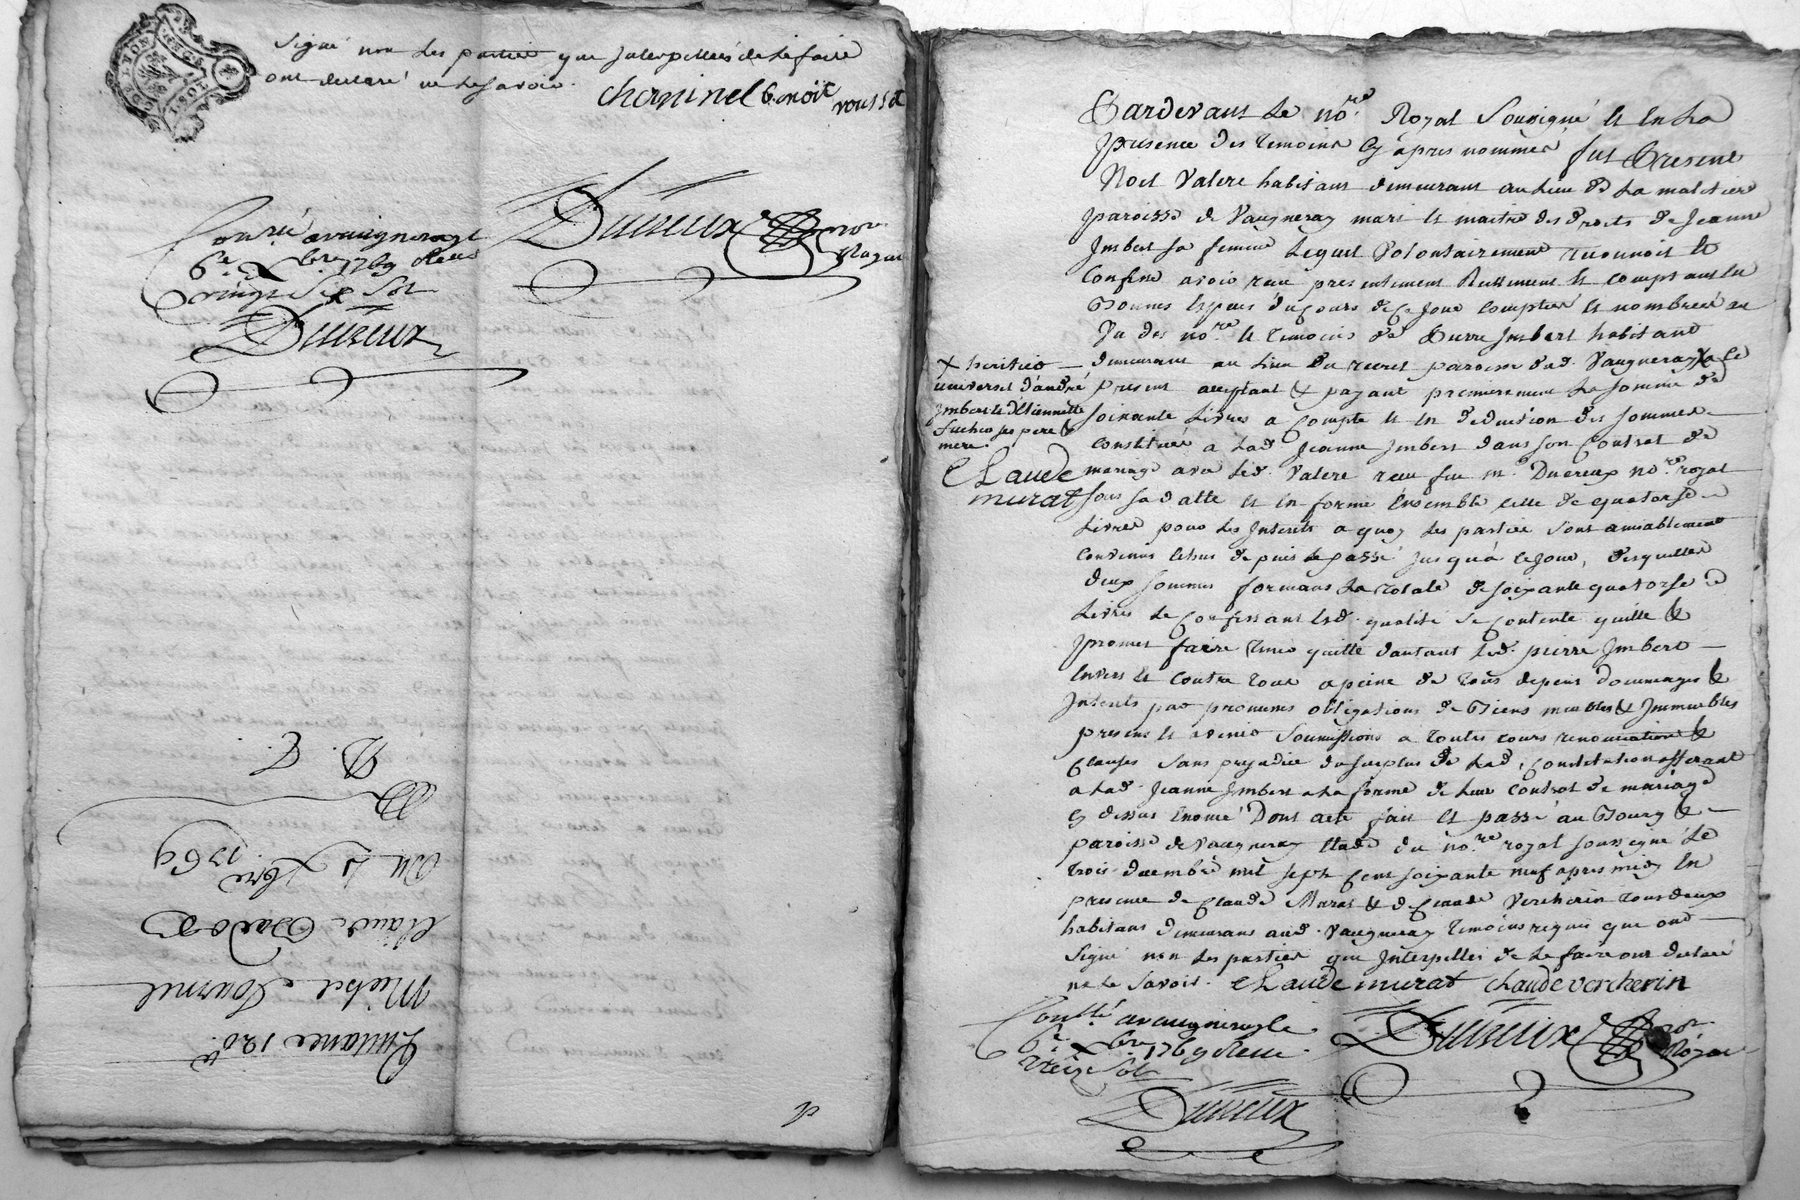 Signé non les parties que Interpellées de le faire
ont declaré ne le savoir.
cheninel Benoit rousset
Dutreux nore Royal
Conté a vaugneray le
6e Xbre 1769 Reçu
vingt six sol
Dutreux
Quittance 120 lt
Michel Fournel
Claude
Du 5 Xbre 1769
Pardevant le nore Royal Soussigné et en la
presence des temoins cy après nommés fut Present
Noel Valere habitant demeurant au lieu de la
paroisse de Vaugneray mari et maitre des droits de Jeanne
Imbert sa femme Lequel Volontairement reconnoit et
Confesse avoir reçu presentement Reellement et comptant en
Bonnes Especes du cours de ce Jour Comptées et nombrées au
Vu des nore et temoins de Pierre Imbert habitant
demeurant au lieu du recret paroisse dud. Vaugneray X a ce
X heritier
universel d'andré
Imbert & d'Etiennette
ses pere &
mere.
Claude
murat
present acceptant & payant premierement la somme de
soixante Livres a Compte et en deduction des sommes
constituées a lad. Jeanne Imbert dans son Contrat de
mariage avec led. Valere reçu feu me Dutreux nore royal
sous sa datte et en forme Ensemble celle de quatorse
Livres pour les Interets a quoy les parties sont amiablement
convenus Echus depuis le passé jusqu'à ce Jour, desquelles
deux sommes formant la totale de soixante quatorse
Livres le Confessant esd. qualité se Contente quitte &
promet faire tenir quitte d'autant led. pierre Imbert
Envers et Contre tous a peine de tous depens dommages &
Interets par promesses obligations de Biens meubles & Immeubles
presens et avenir Soumissions a toutes cours renonciations &
Clauses Sans prejudice du surplus de lad. Constitution afferant
a lad. Jeanne Imbert a la forme de leur Contrat de mariage
cy dessus Enoncé Dont acte fait et passé au Bourg &
paroisse de Vaugneray Etude du nore royal soussigné Le
trois decembre mil sept Cent soixante neuf apres midy En
presence de Claude Murat & de Claude Vercherin tous deux
habitans demeurans aud. Vaugneray temoins requis que ont
Signé non les parties que Interpellées de le faire ont declaré
ne le Savoir. Claude murat Claude vercherin
Conté a vaugneray le
6e Xbre 1769 Reçu
treize Sol
Dutreux nore Royal
Dutreux